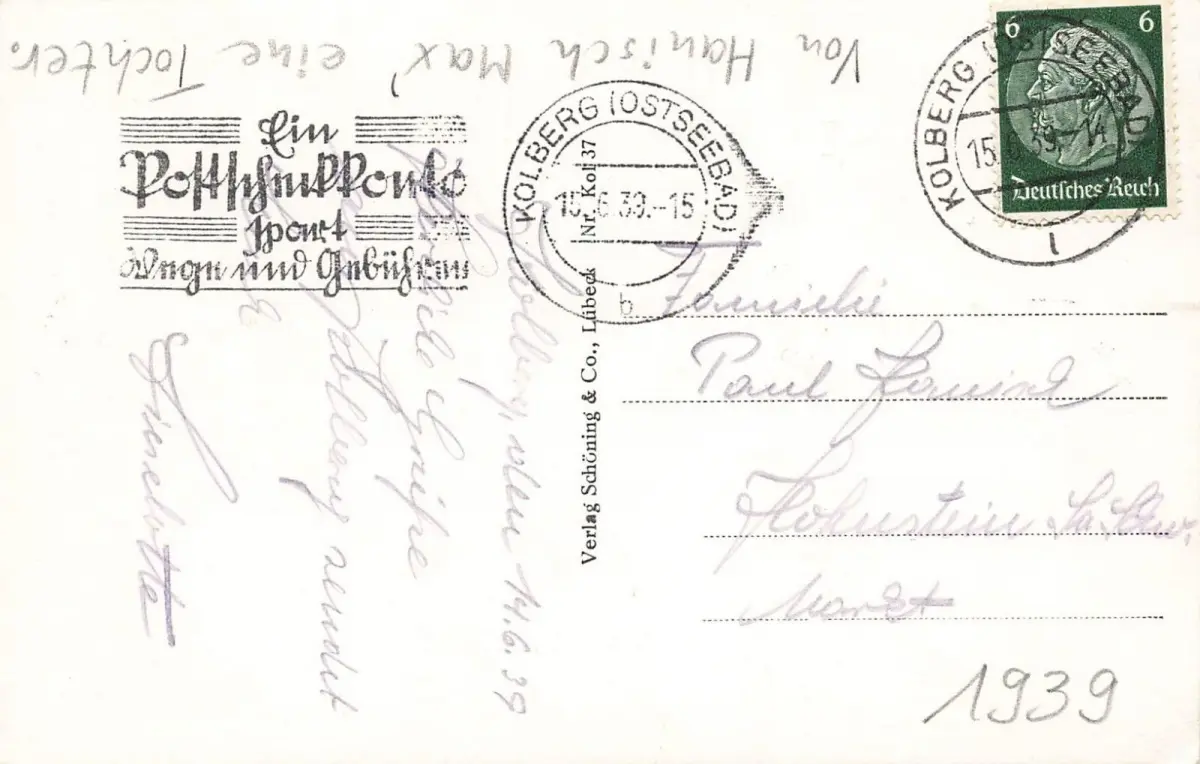 Von Hanisch Max' eine Tochter.
Ein
Postscheckkonto
spart
Wege und Gebühren
KOLBERG (OSTSEEBAD)
15.6.39.-15
b
6
6
Deutsches Reich
KOLBERG (OSTSEEBAD)
15. 39.-14
l
Nr. Kol 37
Verlag Schöning & Co., Lübeck
Kolberg, den 14.6.39
Viele Grüße
Kolberg sendet
Lieselotte
Familie
Paul Hanisch
Hohnstein Sä. Schw.
Markt
1939